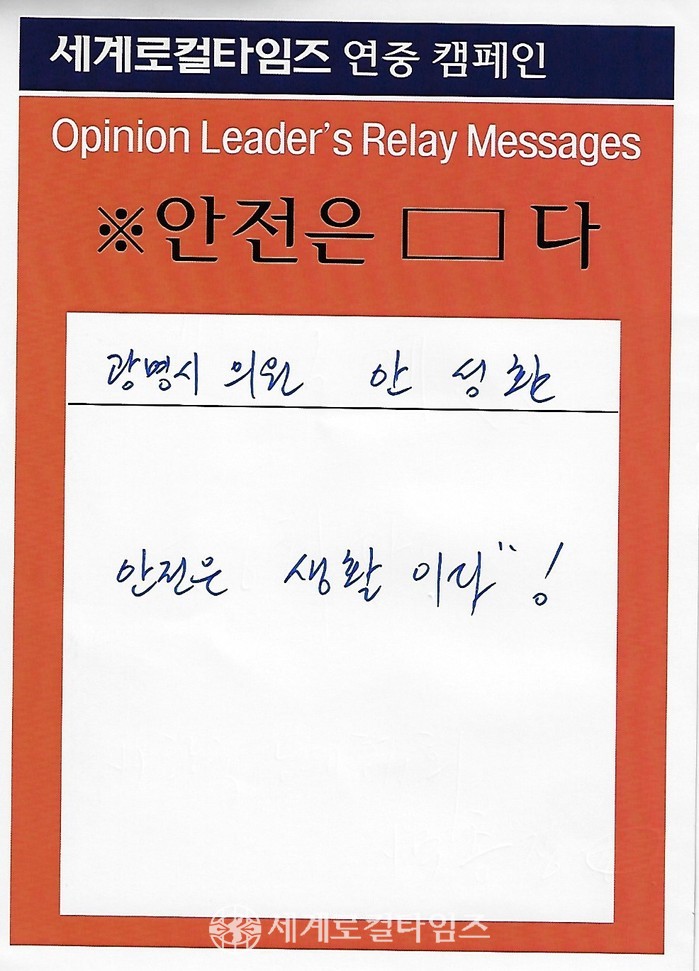 세계로컬타임즈 연중 캠페인
Opinion Leader's Relay Messages
※안전은 □ 다
광명시 의원 안성환
안전은 생활 이다" !
세계로컬타임즈